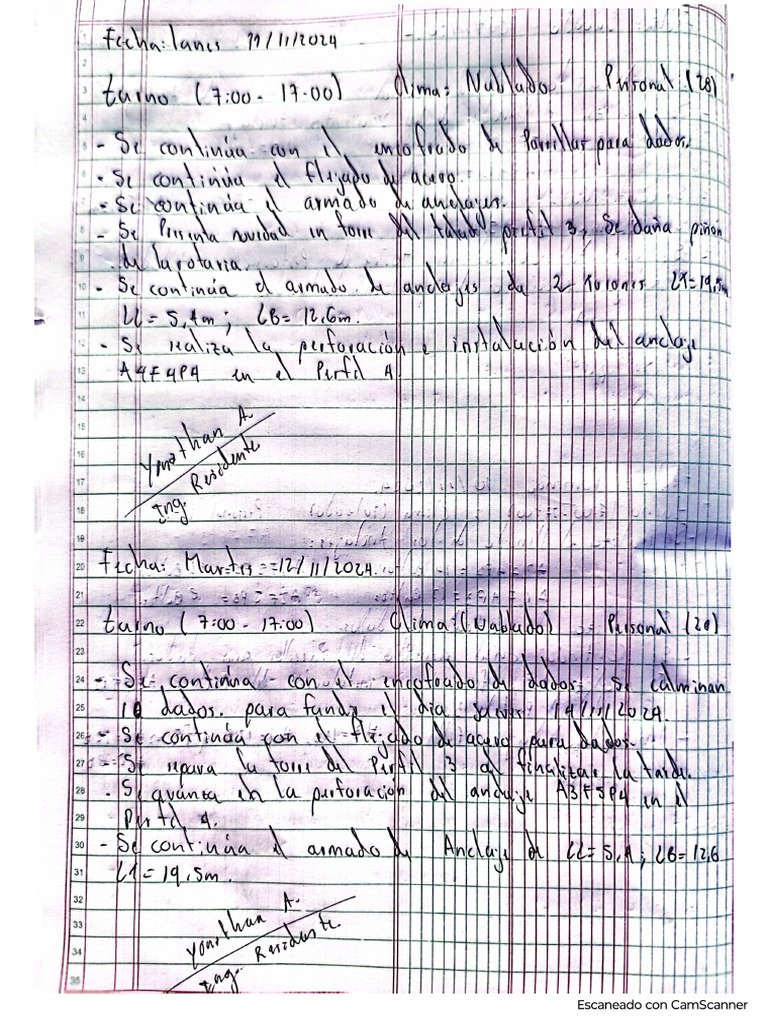 Fecha: lunes 11/11/2024
turno (7:00 - 17:00) Clima: Nublado Personal (20)
- Se continúa con el encofrado de Parrillas para dados.
- Se continúa el flejado de acero.
- Se continúa el armado de anclajes.
- Se Presenta novedad en torre del talud perfil 3, Se daña piñon
de la rotaria.
- Se continúa el armado de anclajes de 2 torones LT=19,5m
LL= 5,4m ; LB= 12,6m.
- Se realiza la perforación e instalación del anclaje
A4F4P4 en el Perfil 4.
Yonathan A.
Ing. Residente
Fecha: Martes 12/11/2024.
turno (7:00 - 17:00) Clima: (Nublado) Personal (20)
- Se continúa con el encofrado de dados Se culminan
10 dados. para fundir el dia jueves 14/11/2024.
- Se continúa con el flejado de acero para dados.
- Se repara la torre del Perfil 3 al finalizar la tarde.
- Se avanza en la perforación del anclaje A3F5P4 en el
Perfil 4.
- Se continúa el armado de Anclaje de LL= 5,4 ; LB= 12,6
LT= 19,5m.
Yonathan A.
Ing. Residente
Escaneado con CamScanner